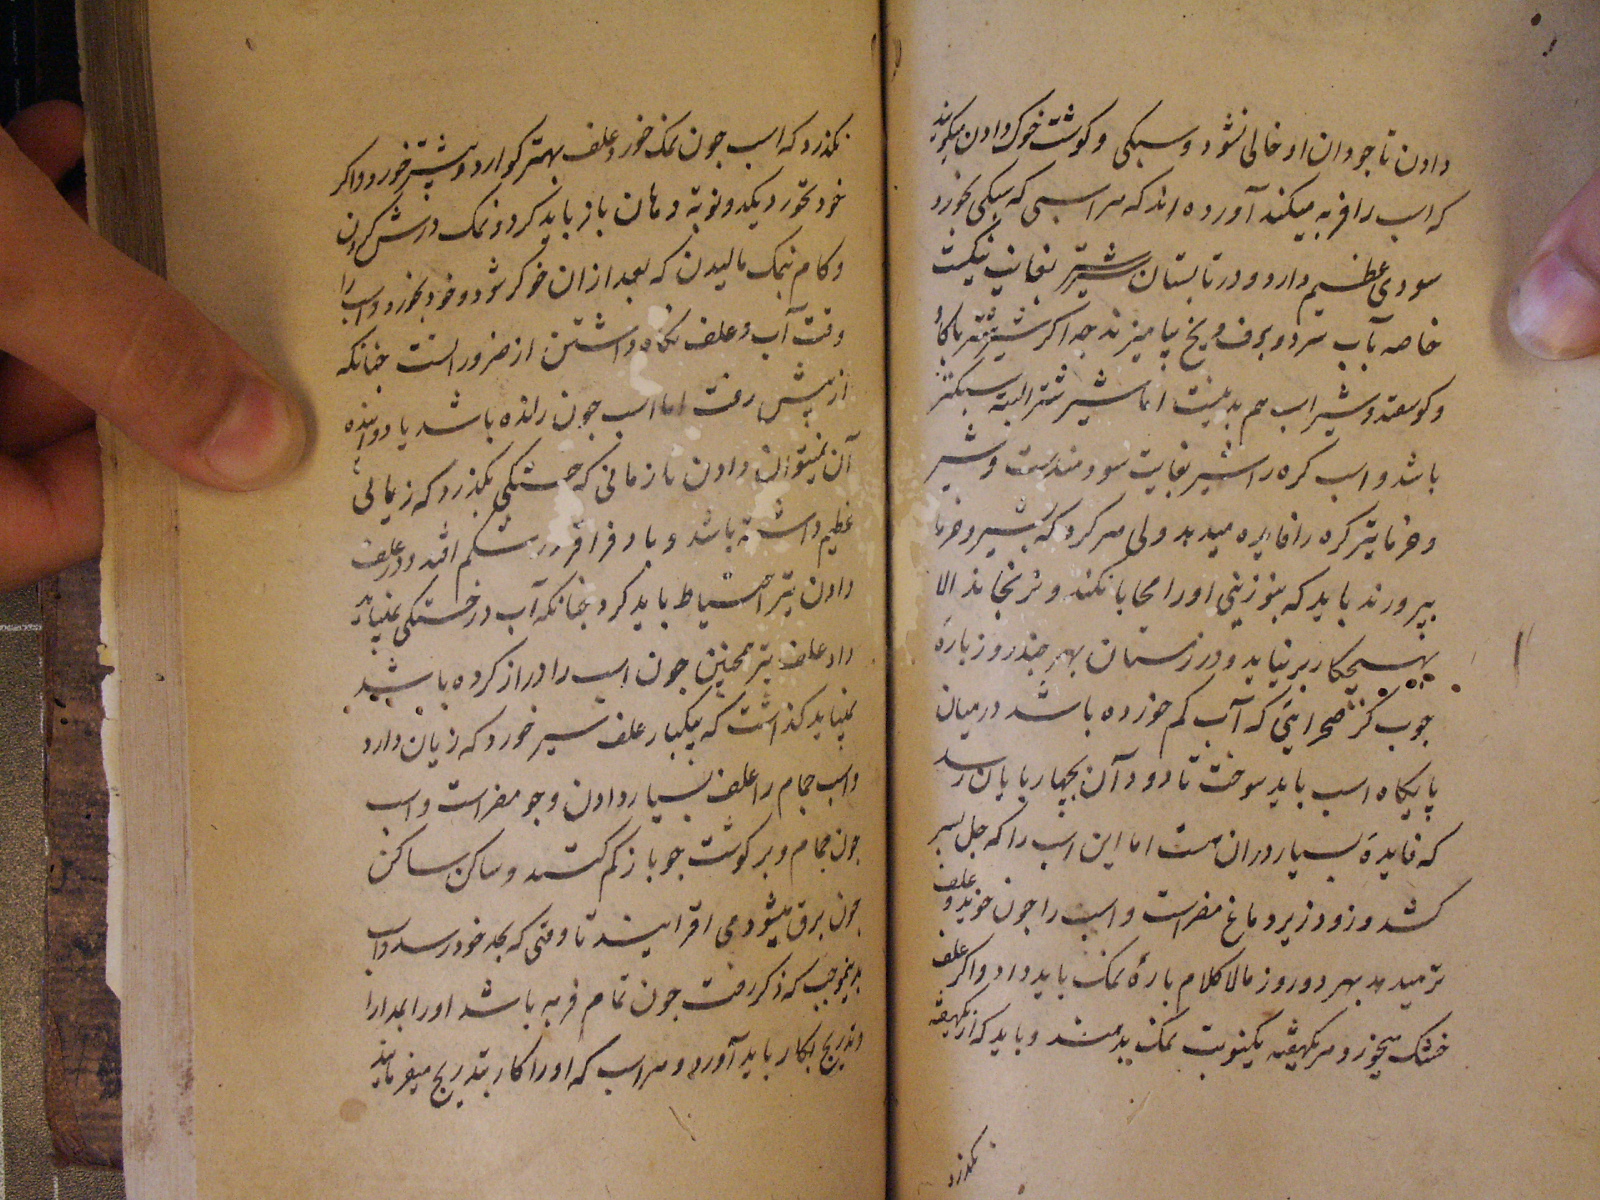 دادن تا جو دان او خالی نشود و سبکی و کوشت خوک دادن میکویند
که اسب را فربه میکند آورده اند که هر اسبی که سکی بخورد
سودی عظیم دارد و در تابستان شیر شتر بغایت نیکست
خاصه بآب سرد و برف و یخ بیامیزند جه اکر شیر شتر باکاو
و کوسفند و شیر اسب هم بد نیست اما شیر شتر البته سبکتر
باشد و اسب کره را شیر بغایت سودمندست و شیر
و خرما نیز کره را فایده میدهد ولی هر کره که بشیر و خرما
بپرورند باید که بنوزینی او را محابا نکند و نرنجاند الا
بهیچکار برنیاید و در زمستان بهر چند روز پارهٔ
جوب کز صحرایئی که آب کم خورده باشد در میان
پایکاه اسب باید سوخت تا دود آن بچهارپایان رسد
که فایدهٔ بسیار در آن هست اما این اسب را که جل بسر
کشد و زود زیر دماغ مضر است و اسب را جون خوید و علف
تر میدهد بهر دو روز مالاکلام پارهٔ نمک باید داد و اکر علف
خشک میخورد هر یکهفته یکنوبت نمک بدهند و باید که از یکهفته
نکذرد
نکذرد که اسب جون نمک خورد علف بهتر کوارد و بیشتر خورد و اکر
خود نخورد یکدو نوبة دهان باز باید کرد و نمک درش کردن
و کام بنمک مالیدن که بعد از آن خوکر شود و خود بخورد و اسب را
وقت آب و علف نکاه داشتن از ضروراتست جنانکه
از پیش رفت اما اسب جون رانده باشد یا دوانیده
آن نمیتوان دادن تا زمانی که خستکی بکذرد که زیانی
عظیم داشته باشد و باد قراقر در شکم افتد و در علف
دادن نیز احتیاط باید کرد جنانکه آب در خستکی نمیباید
داد علف نیز همچنین جون اسب را دراز کرده باشند
نمیباید کذاشت که بیکبار علف سیر خورد که زیان دارد
و اسب جمام را علف بسیار دادن و جو مضر است و اسب
جون جمام و بر کوشت جو باز کم کنند و ساکن ساکن
جون برق میشود می افزایند تا وقتی که بحد خود رسد و اسب
بدینموجب که ذکر رفت جون تمام فربه باشد او را بمدارا
و تدریج بکار باید آورد و هر اسب که او را کار بتدریج میفرمایند